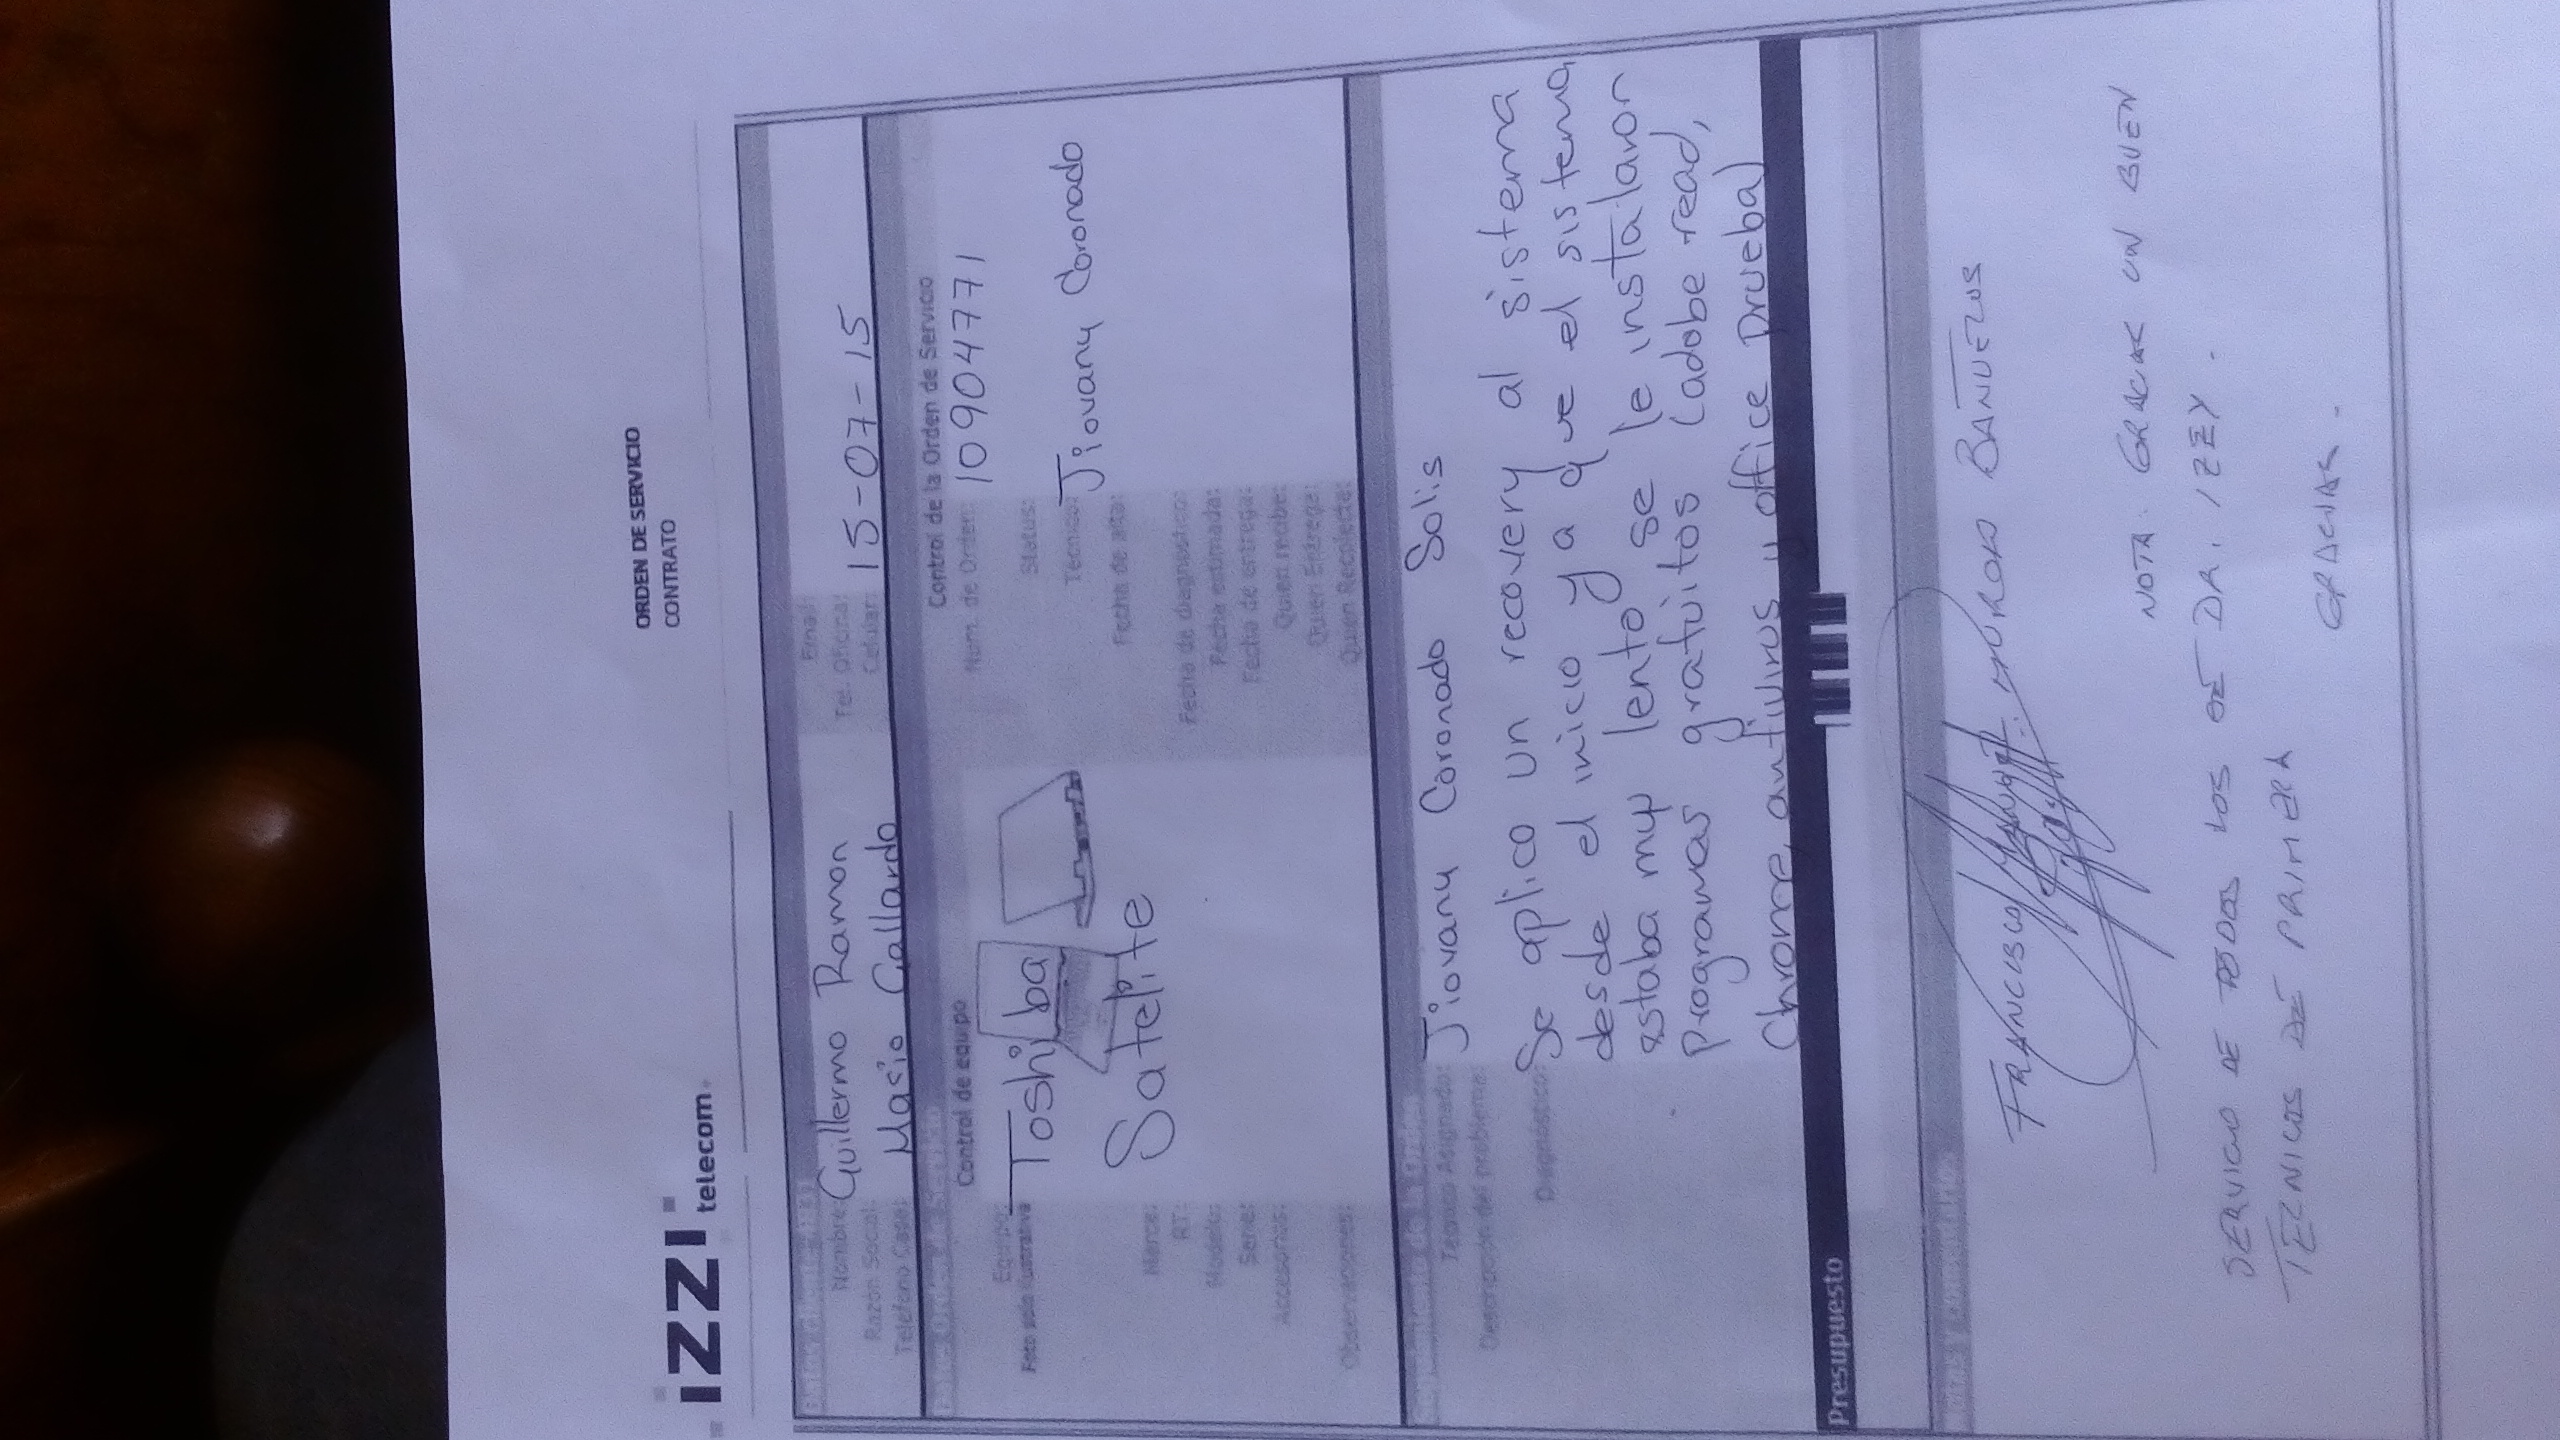 izzi telecom
ORDEN DE SERVICIO
CONTRATO
Nombre: Guillermo Ramon
Razon Social:
Telefono Casa: Macio Gallardo
Email:
Tel. Oficina:
Celular: 15-07-15
Control de equipo
Equipo: Toshiba
Foto solo ilustrativa
Satelite
Marca:
RT:
Modelo:
Serie:
Accesorios:
Observaciones:
Control de la Orden de Servicio
Num. de Orden: 10904771
Status:
Tecnico: Jiovany Coronado
Fecha de alta:
Fecha de diagnostico:
Fecha estimada:
Fecha de entrega:
Quien recibe:
Quien Entrega:
Quien Recolecta:
Tecnico Asignado: Jiovany Coronado Solis
Descripcion del problema:
Diagnostico: Se aplico un recovery al sistema
desde el inicio y a que el sistema
estaba muy lento se le instalaron
programas gratuitos (adobe read,
Chrome, antivirus y office prueba)
Presupuesto
FRANCISCO BAÑUELOS
NOTA. GRACIAS UN BUEN
SERVICIO DE TODOS LOS DE IZZY.
TECNICOS DE PRIMERA GRACIAS.